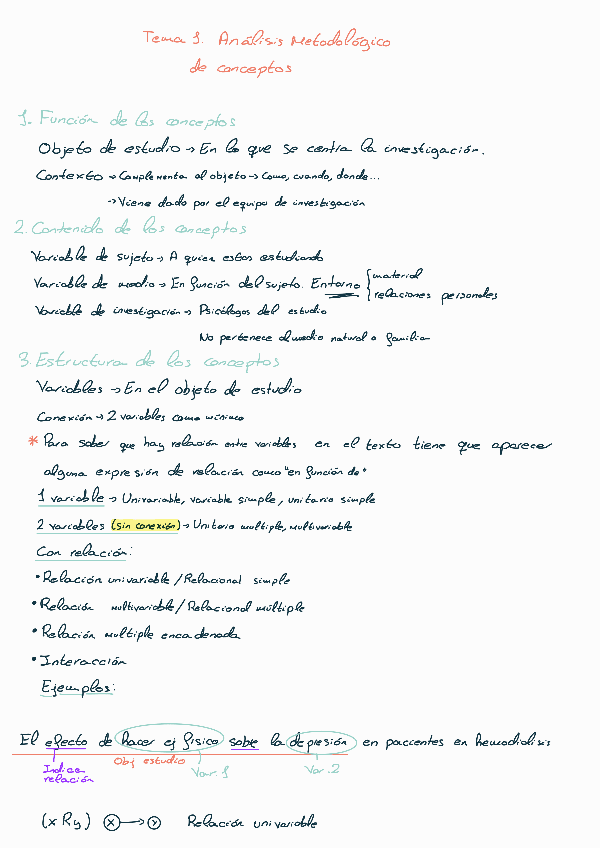 Tema 1. Análisis Metodológico
de conceptos
1. Función de los conceptos
Objeto de estudio → En lo que se centra la investigación.
Contexto → Complementa al objeto → Como, cuando, donde...
→ Viene dado por el equipo de investigación
2. Contenido de los conceptos
Variable de sujeto → A quien estas estudiando
Variable de medio → En función del sujeto. Entorno { material
relaciones personales
Variable de investigación → Psicólogos del estudio
No pertenece al medio natural o familiar
3. Estructura de los conceptos
Variables → En el objeto de estudio
Conexión → 2 variables como mínimo
* Para saber que hay relación entre variables en el texto tiene que aparecer
alguna expresión de relación como "en función de"
1 variable → Univariable, variable simple, unitario simple
2 variables (sin conexión) → Unitario multiple, multivariable
Con relación:
• Relación univariable / Relacional simple
• Relación multivariable / Relacional múltiple
• Relación multiple encadenada
• Interacción
Ejemplos:
El efecto de hacer ej físico sobre la depresión en paccientes en hemodialisis
Indice relación
Obj estudio
Var. 1
Var. 2
(x Ry) x → y Relación univariable